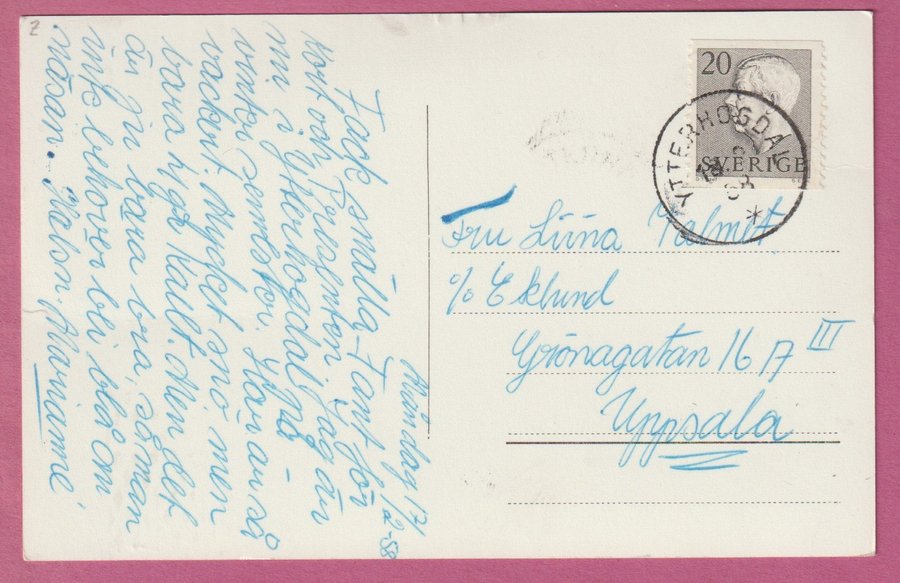 2
Måndag 17/2-58
Tack snälla Tant för
kortoch Presenten jag är
nu i Ytterhogdal på
vintersemester. Här är så
vackert. Mycket snö men
bara 17 gr kallt. Men det
är ju bara bra, så man
inte behöver bli blå om
näsan. Hälsn. Marianne
20
SVERIGE
YTTERHOGDAL
Fru Liina Kalmet
c/o Eklund
Grönagatan 16 A III
Uppsala